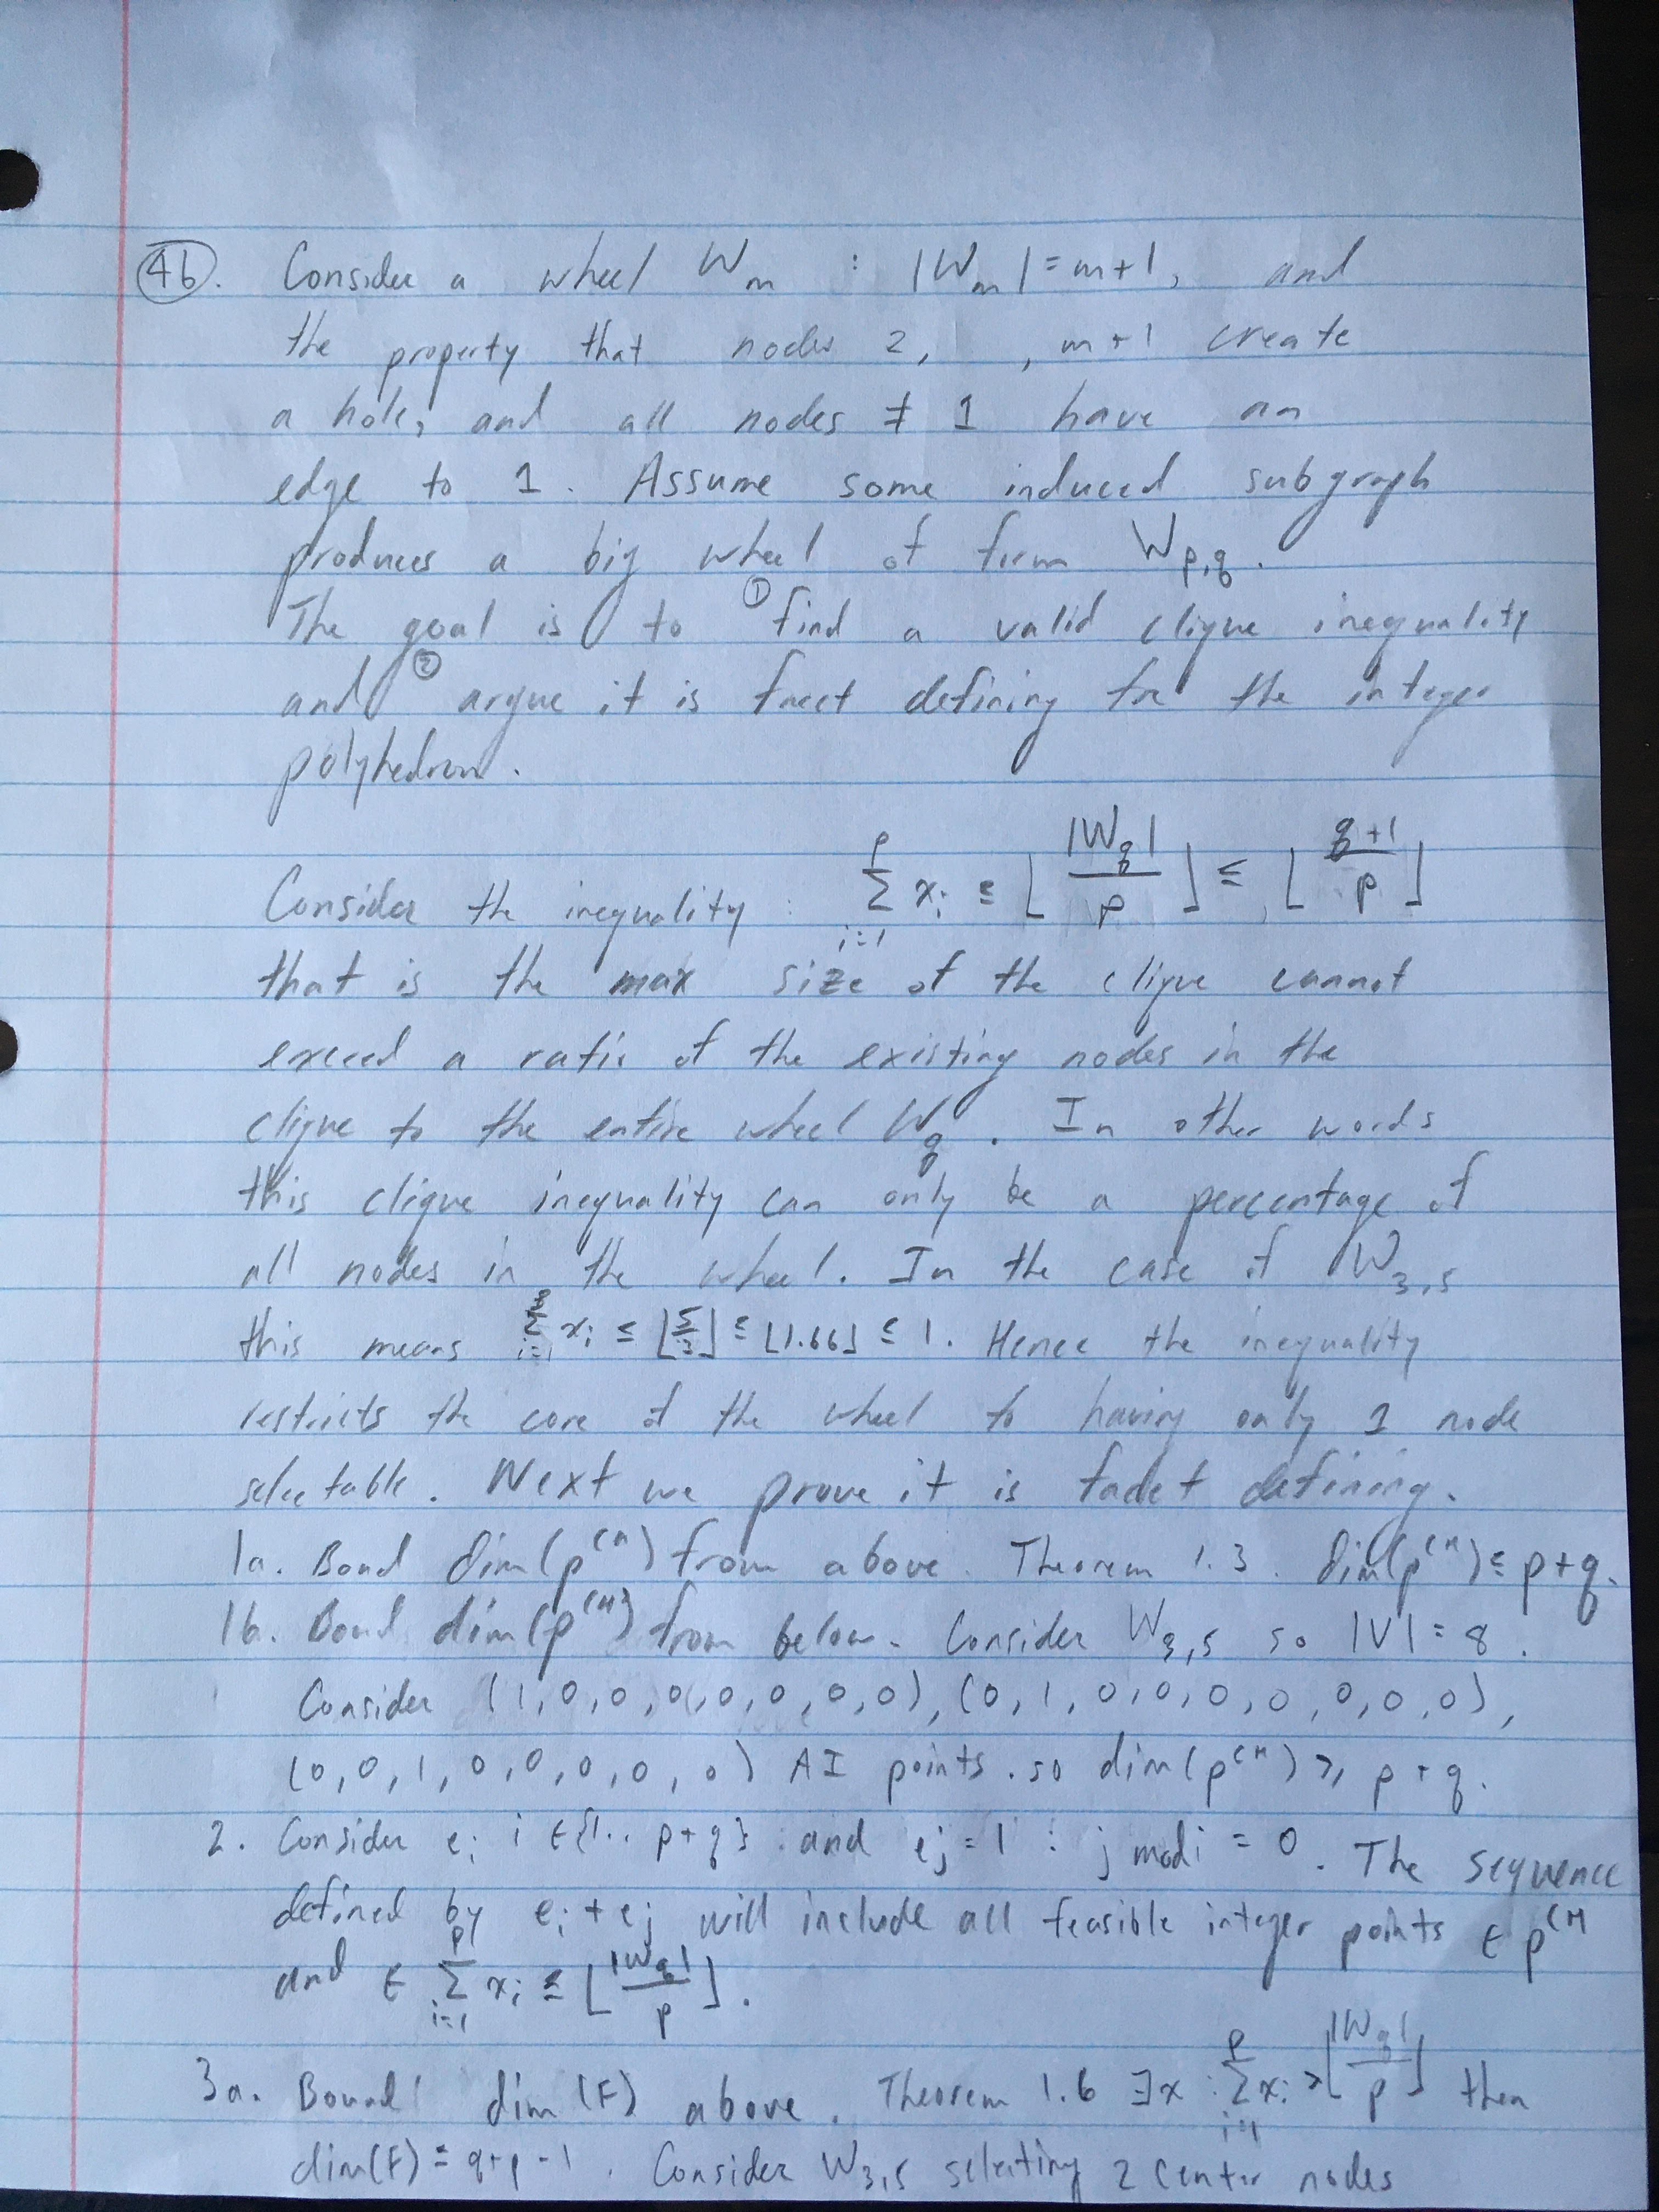 4b. Consider a wheel W_m : |W_m| = m+1, and
the property that nodes 2, , m+1 create
a hole, and all nodes ≠ 1 have an
edge to 1. Assume some induced subgraph
produces a big wheel of form W_p,q.
The goal is to ① find a valid clique inequality
and ② argue it is facet defining for the integer
polyhedron.
Consider the inequality: \sum_{i=1}^{p} x_i ≤ ⌊|W_q|/p⌋ ≤ ⌊(q+1)/p⌋
that is the max size of the clique cannot
exceed a ratio of the existing nodes in the
clique to the entire wheel W_q. In other words
this clique inequality can only be a percentage of
all nodes in the wheel. In the case of W_3,5
this means x_i ≤ ⌊5/3⌋ ≤ ⌊1.66⌋ ≤ 1. Hence the inequality
restricts the core of the wheel to having only 1 node
selectable. Next we prove it is fadet defining.
1a. Bond dim(p^CH) from above. Theorem 1.3. dim(p^CH) ≤ p+q.
1b. Bond dim(p^CH) from below. Consider W_3,5 so |V| = 8.
Consider (1,0,0,0,0,0,0,0), (0,1,0,0,0,0,0,0,0),
(0,0,1,0,0,0,0,0) AI points. so dim(p^CH) ≥ p+q.
2. Consider e_i i ∈ {1.. p+q} : and e_j = 1 : j mod i = 0. The sequence
defined by e_i + e_j will include all feasible integer points ∈ p^CH
and ∈ \sum_{i=1}^{p} x_i ≤ ⌊|W_q|/p⌋.
3a. Bound dim(F) above. Theorem 1.6 ∃x : \sum_{i=1}^{p} x_i > ⌊|W_q|/p⌋ then
dim(F) ≤ q+p-1. Consider W_3,5 selecting 2 center nodes